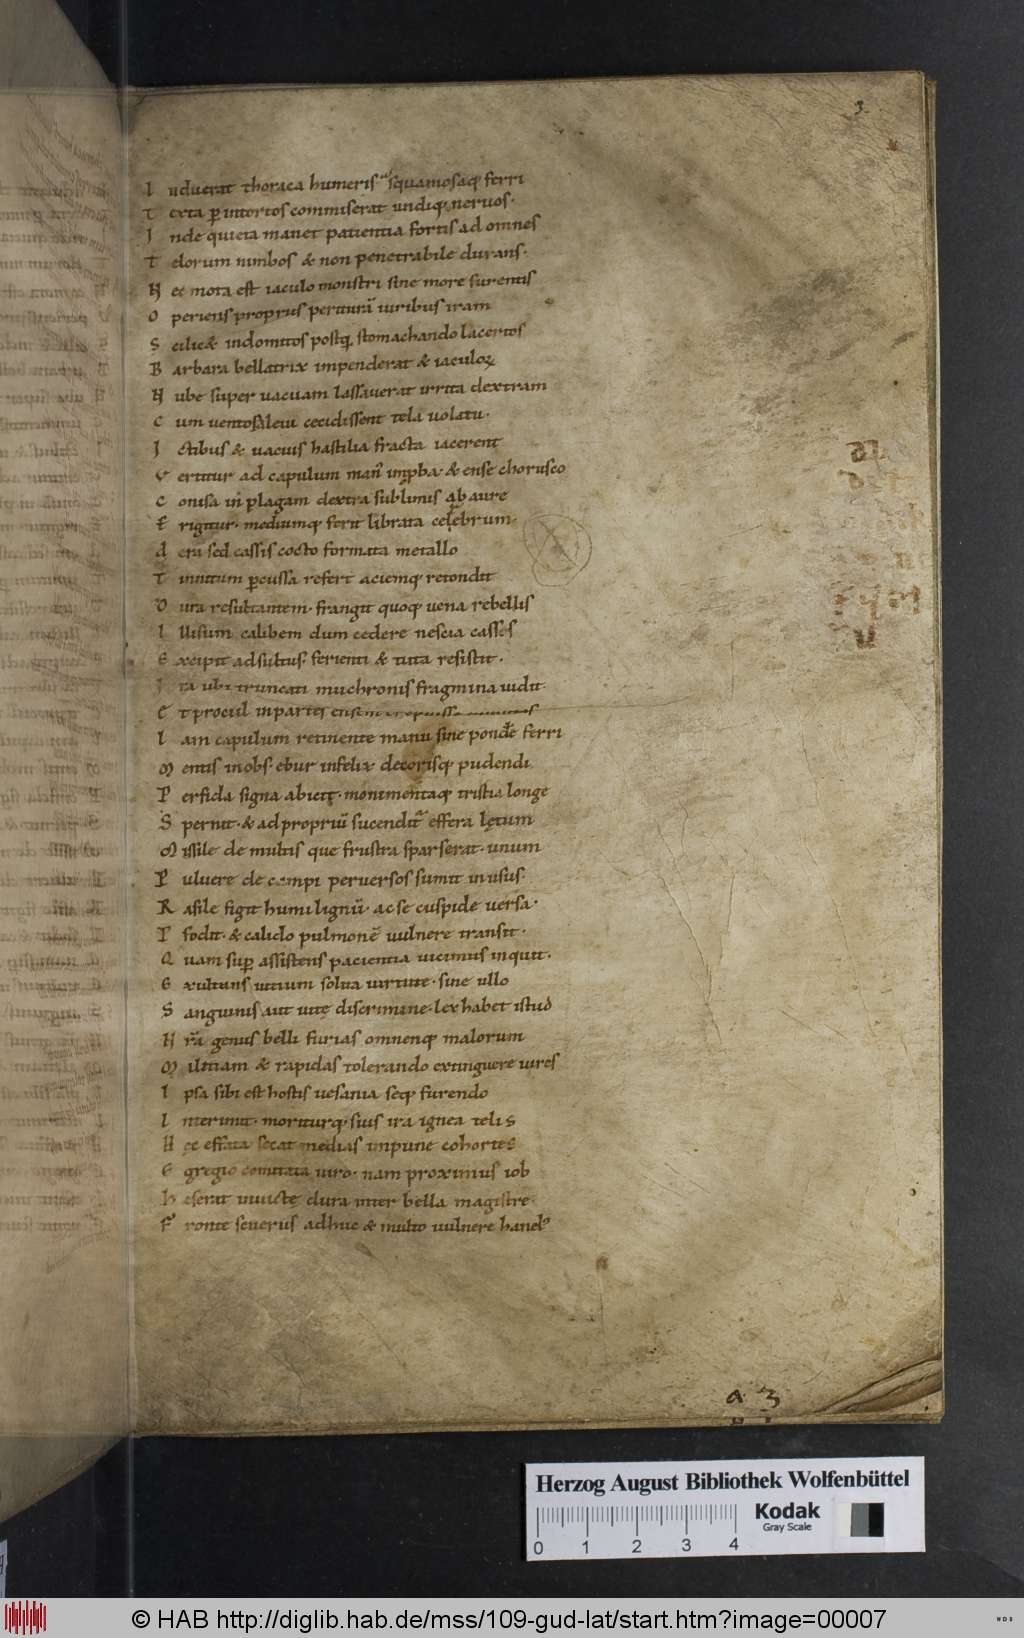 3
I nduerat thoraca humeris squamosaq ferri
T exta p intortos commiserat undiq neruos.
I nde quieta manet patientia fortis ad omnes
T elorum nimbos & non penetrabile durans.
N ec mota est iaculo monstri sine more furentis
O periens propriis periturā uiribus iram
S cilic& indomitos postq stomachando lacertos
B arbara bellatrix impenderat & iaculoꝝ
N ube super uacuam lassauerat irrita dextram
C um uentosa leui cecidissent tela uolatu.
I ctibus & uacuis hastilia fracta iacerent
V ertitur ad capulum man' impba & ense chorusco
C onisa in plagam dextra sublimis ab aure
E rigitur. mediumq ferit librata celebrum.
A erea sed cassis cocto formata metallo
T innitum pcussa refert aciemq retondit
D ura resultantem. frangit quoq uena rebellis
I llisum calibem dum cedere nescia cassos
E xcipit adsultus. ferienti & tuta resistit.
I ra ubi truncati muchronis fragmina uidit
E t procul in partes ensem
I am capulum retinente manu sine pondere ferri
M entis inops. ebur infelix decorisq pudendi
P erfida signa abicit. monimentaq tristia longe
S pernit. & ad propriū sucendit effera lętum
M issile de multis que frustra sparserat. unum
P uluere de campi peruersos sumit in usus.
R asile figit humi lignū. ac se cuspide uersa.
P fodit. & calido pulmonē uulnere transit.
Q uam sup assistens pacientia uicimus inquit.
E xultans uitium solita uirtute. sine ullo
S anguinis aut uitę discrimine. lex habet istud
N rā genus belli furias omnemq malorum
M ilitiam & rapidas tolerando extinguere uires
I psa sibi est hostis uesania seq furendo
I nterimit. moriturq suis ira ignea telis
H ęc effata secat medias impune cohortes
E gregio comitata uiro. nam proximus iob
H eserat inuicte dura inter bella magistre.
F ronte seuerus adhuc & multo uulnere hanel'
a 3
Herzog August Bibliothek Wolfenbüttel
Kodak
Gray Scale
0 1 2 3 4
© HAB http://diglib.hab.de/mss/109-gud-lat/start.htm?image=00007